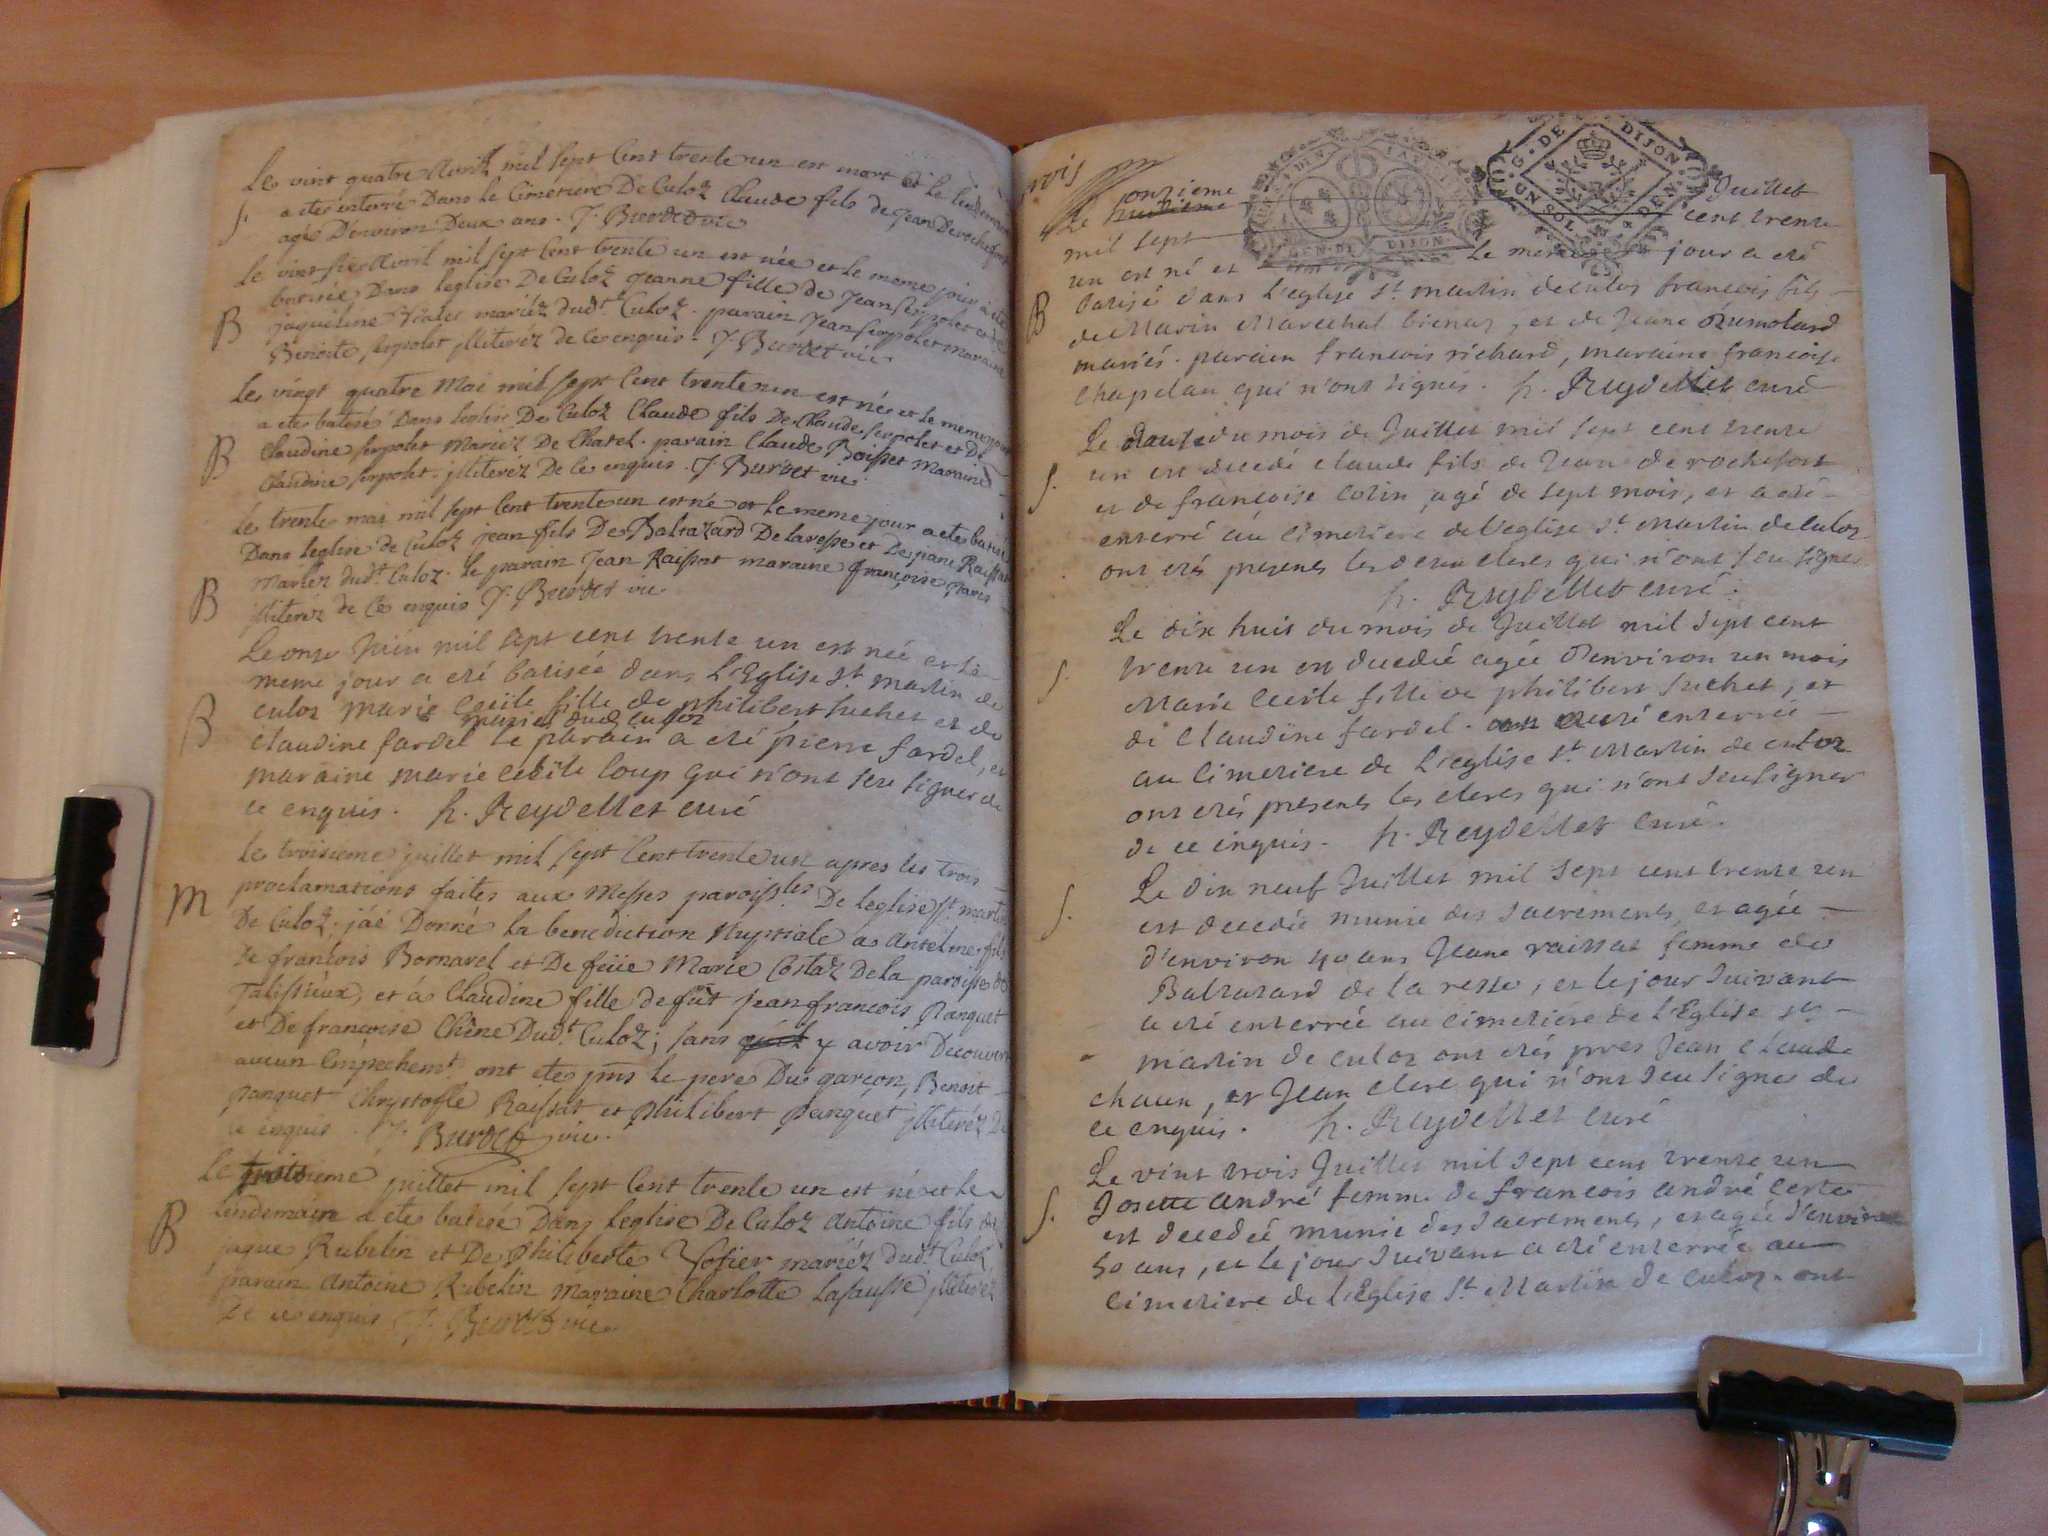 Le vint quatre Avril mil sept Cent trente un est mort et le lendemain
S. a ete enterré Dans le Cimetiere De Culoz Claude fils de Jean Derochefort
agé D'environ Deux ans. J. Burdet vic
Le vint Avril mil sept Cent trente un est née et le meme jour a ete
batisée Dans leglise De Culoz Jeanne fille de Jean Serpolet et de
B jaqueline mariéz dudt Culoz. parain Jean Serpolet maraine
Benoite Serpolet jlliteréz de ce enquis. J. Burdet vic
Le vingt quatre Mai mil sept Cent trente un est née et le meme jour
a ete batisé Dans leglise De Culoz Claude fils De Claude Serpolet et De
B Claudine Serpolet Mariéz De Chatel. parain Claude Boisset Maraine
Claudine Serpolet. jlliteréz De ce enquis. J. Burdet vic
Le trente mai mil sept Cent trente un est né et le meme jour a ete batisé
Dans leglise de Culoz jean fils De Baltazard Delaresse et De jeane Raissat
Mariéz dudt Culoz. le parain Jean Raissat maraine françoise
B jlliteréz de ce enquis J. Burdet vic
Le onze Juin mil sept cent trente un est née et le
meme jour a eté batisée dans L'Eglise St martin de
B culoz marie Cecile fille de philibert suchet et de
mariés dud culoz
Claudine fardel le parain a eté pierre fardel, et
maraine marie cecile loup qui n'ont sceu signer de
ce enquis. h. Reydellet curé
Le troisieme juillet mil sept Cent trente un apres les trois
M proclamations faites aux Messes paroissles De leglise St. martin
De Culoz. jaé Donné la benediction Nuptiale a Antelme fils
de francois Bornarel et De feüe Marie Costaz De la paroisse de
Talissieux, et a Claudine fille defût jean francois panquet
et De françoise Chêne Dudt. Culoz; sans y avoir Decouvert
aucun Empechemt ont ete pnts le pere Du garçon, Benoit
panquet Chrystofle Raissat et philibert panquet jlliteréz De
ce enquis. J. Burdet vic.
Le troisieme juillet mil sept Cent trente un est né et le
lendemain a ete batisé Dans leglise De Culoz Antoine fils de
B jaque Rubelin et De philiberte mariéz dudt. Culoz
parain Antoine Rubelin Maraine Charlotte Lafausse jlliteréz
De ce enquis J. Burdet vic.
G. DE DIJON
UN SOL DEN
GEN. DE DIJON
onzieme
Le huitieme Juillet
mil sept cent trente
un est né et Le meme jour a eté
B batisé dans L'eglise St. martin deculoz francois fils
de Marin Marechal bienaz, et de Jeane Dumolard
mariés. parain francois richard, maraine francoise
Chapelau qui n'ont signés. h. Reydellet curé
Le douse du mois de Juillet mil sept cent trente
S. un est decedé claude fils de Jean de rochefort
et de françoise colin, agé de sept mois, et a eté
enterré au cimetiere de l'eglise St. Martin deculoz
ont etés presents les deux clercs qui n'ont sceu signer
h. Reydellet curé.
Le dix huit du mois de Juillet mil sept cent
S. trente un est decedée agée d'environ un mois
Marie Cecile fille de philibert suchet, et
de Claudine fardel. a eté enterrée
au cimetiere de L'eglise St. Martin de culoz
ont etés presents les clercs qui n'ont sceu signer
de ce enquis. h. Reydellet curé.
Le dix neuf Juillet mil sept cent trente un
S. est decedée munie des sacrements, et agée
d'environ 40 ans Jeane raissat femme de
Baltazard de la resse, et le jour suivant
a eté enterrée au cimetiere de l'Eglise St.
Martin de culoz ont etés pres Jean claude
chaux, et Jean clerc qui n'ont sceu signer de
ce enquis. h. Reydellet curé
Le vint trois Juillet mil sept cent trente un
S. Josette andré femme de francois andré
est decedée munie des sacrements, et agée d'environ
50 ans, et le jour suivant a eté enterrée au
cimetiere de l'Eglise St. Martin de culoz. ont